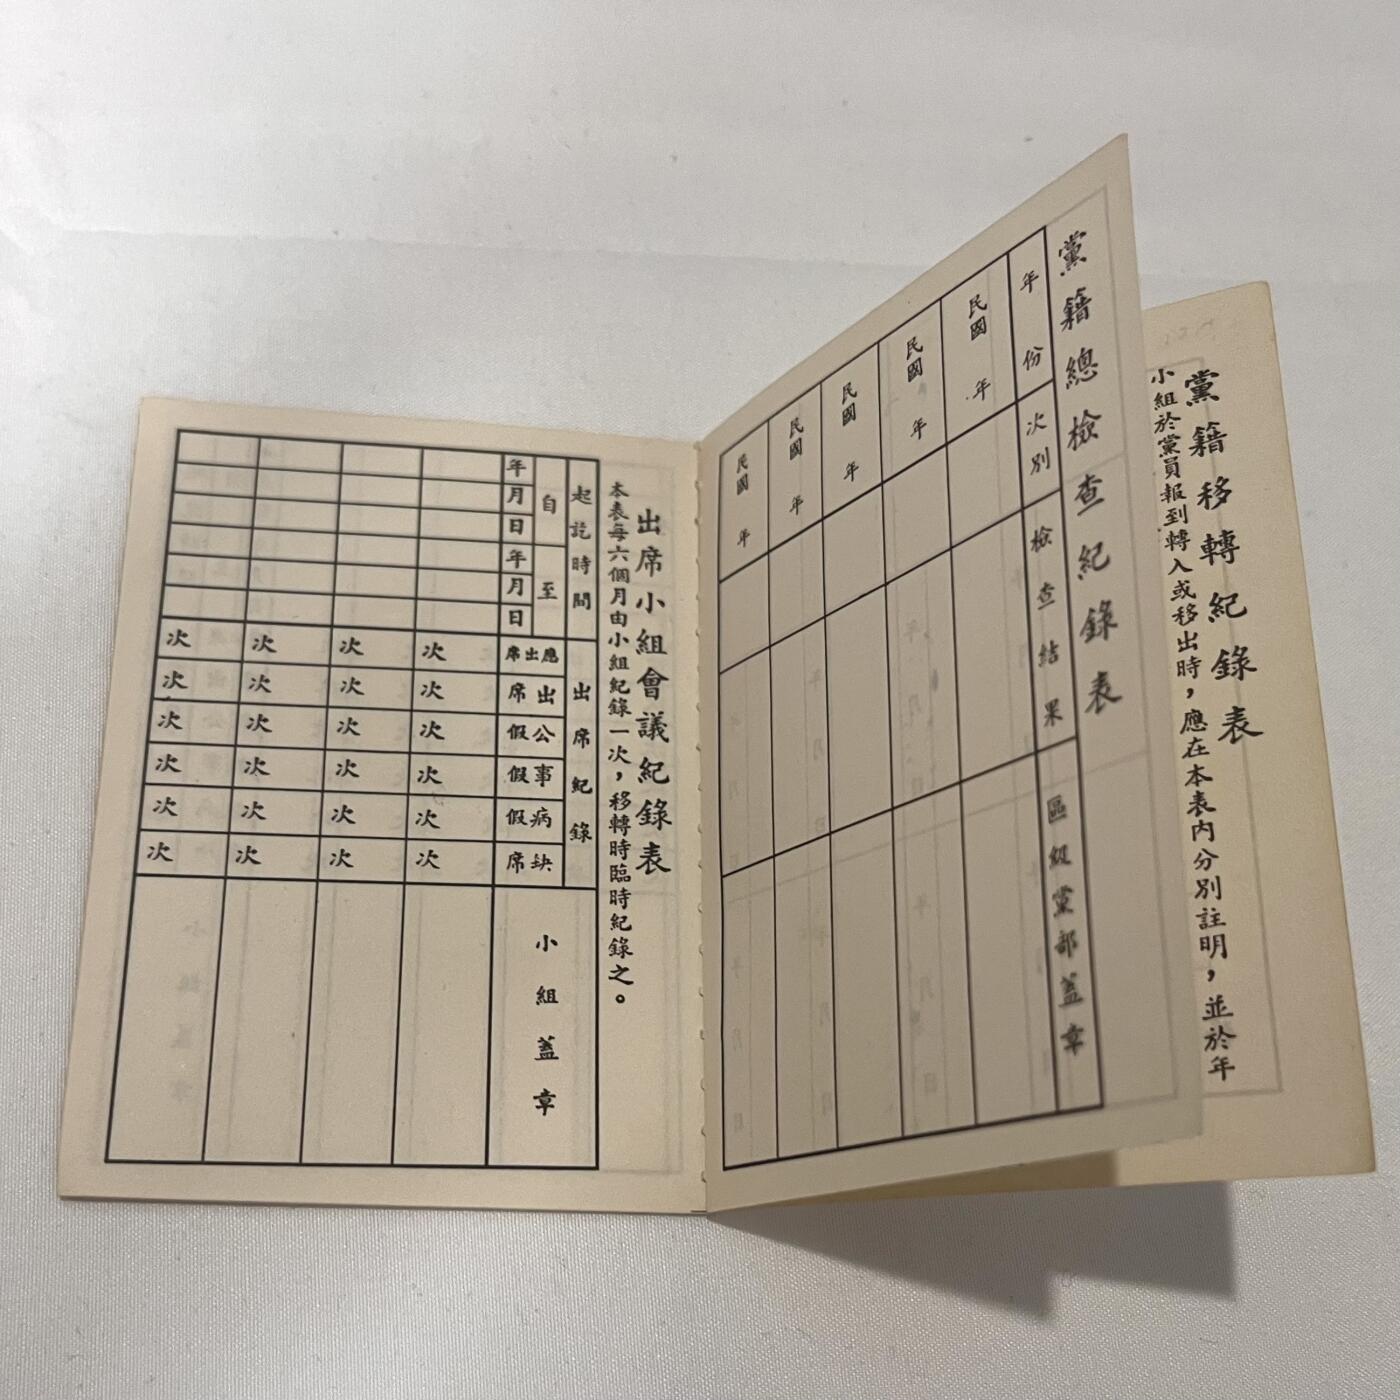 黨籍移轉紀錄表
小組於黨員報到轉入或移出時，應在本表內分別註明，並於年
黨籍總檢查紀錄表
年份
次別
檢查結果
區級黨部蓋章
民國 年
民國 年
民國 年
民國 年
民國 年
出席小組會議紀錄表
本表每六個月由小組紀錄一次，移轉時臨時紀錄之。
起訖時間
出席紀錄
自
年
月
日
至
年
月
日
席出應
席出
假公
假事
假病
席缺
小組蓋章
次 次 次 次
次 次 次 次
次 次 次 次
次 次 次 次
次 次 次 次
次 次 次 次